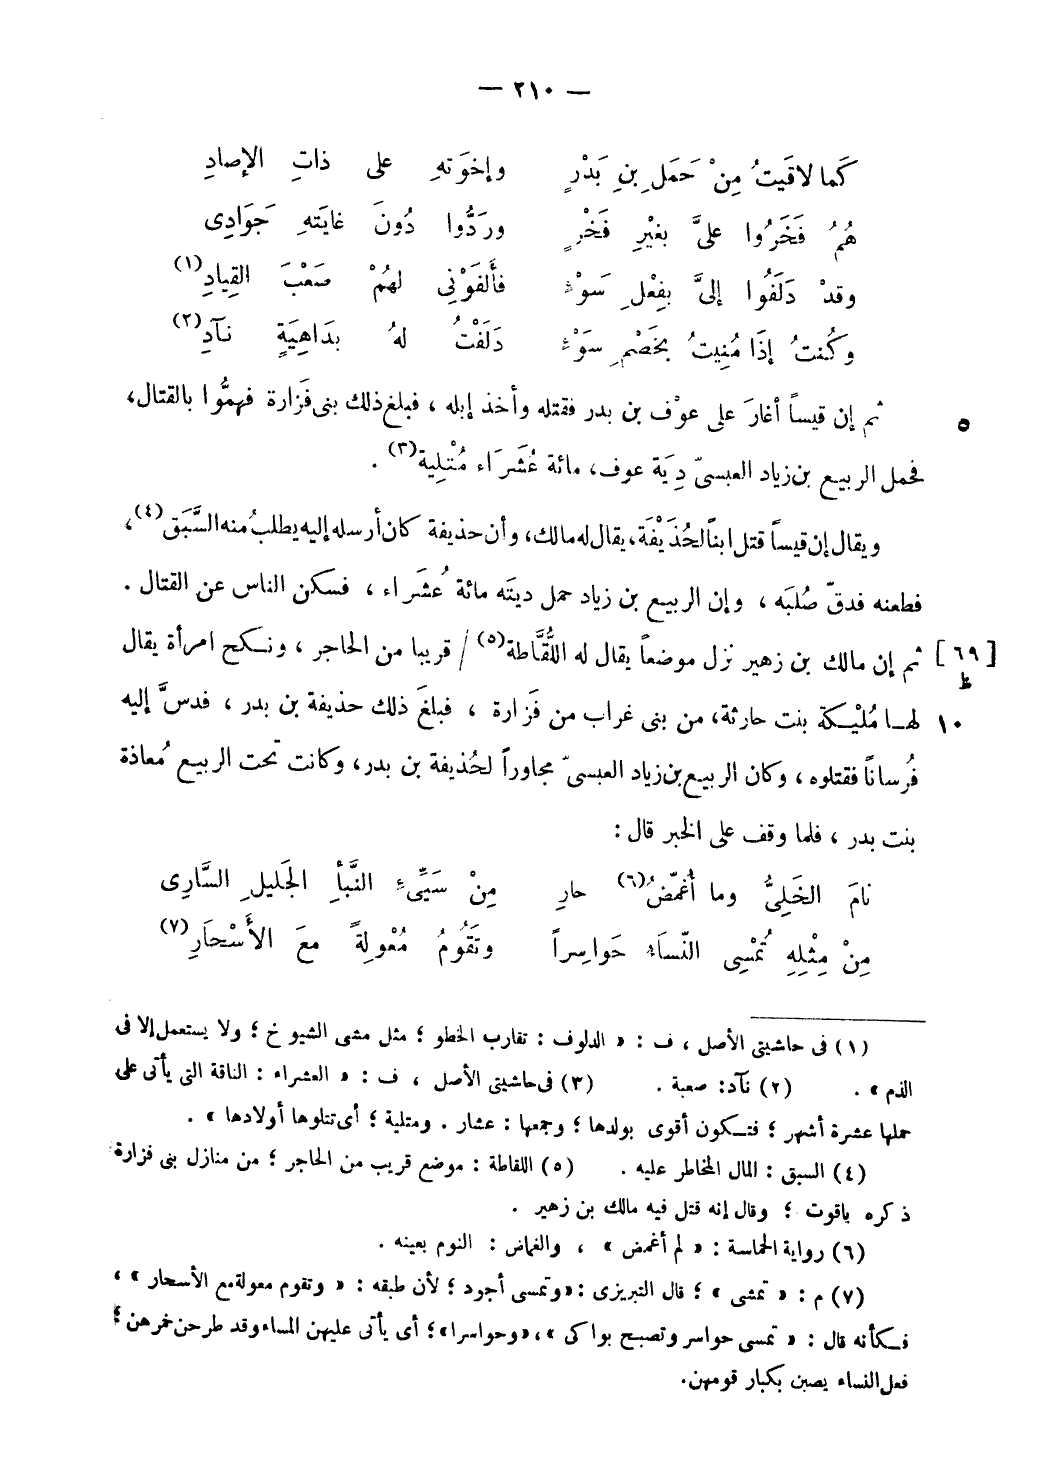 — ٢١٠ —
كَما لاقَيتُ مِنْ حَمَلِ بنِ بَدْرٍ وإخوَتهِ على ذاتِ الإصادِ
هُمُ فَخَرُوا علىَّ بغيْرِ فَخْرٍ وردُّوا دُونَ غايَتهِ جَوَادِى
وقدْ دَلَفُوا إلىَّ بِفِعْلِ سَوْءٍ فألفَوْنِى لهُمْ صَعْبَ القِيادِ(١)
وكُنتُ إذَا مُنِيتُ بخَصْمِ سَوْءٍ دَلَفْتُ لهُ بدَاهِيَةٍ نآدِ(٢)
ثم إن قيساً أغارَ على عوْف بن بدر فقتله وأخذ إبله ، فبلغ ذلك بنى فَزارة فهمُّوا بالقتال، ٥
فحمل الربيع بن زياد العبسىّ دِيَة عوف، مائة عُشَرَاء مُتْلِية(٣) .
ويقال إن قيساً قتل ابناً لحُذَيْفَة، يقال له مالك، وأن حذيفة كان أرسله إليه يطلبُ منه السَّبَق(٤)،
فطعنه فدقّ صُلبَه ، وإن الربيع بن زياد حمل ديتَه مائة عُشَراء ، فسكن الناس عن القتال .
[٦٩ ظ] ثم إن مالك بن زهير نزل موضعاً يقال له اللُّقَّاطة(٥) / قريبا من الحاجر ، ونكح امرأة يقال
١٠ لهـا مُليْكة بنت حارثة، من بنى غراب من فَزارة ، فبلغَ ذلك حذيفة بن بدر ، فدسَّ إليه
فُرساناً فقتلوه ، وكان الربيع بن زياد العبسىّ مجاوراً لحُذيفة بن بدر، وكانت تحت الربيع مُعاذة
بنت بدر ، فلما وقف على الخبر قال :
نامَ الخَلِىُّ وما أُغمّضُ(٦) حارِ مِنْ سَيِّىءِ النَّبأِ الجَليلِ السَّارِى
مِنْ مِثْلِهِ تُمْسِى النّسَاءُ حَواسِراً وتَقُومُ مُعْوِلةً معَ الأَسْحَارِ(٧)
(١) فى حاشيتى الأصل ، ف : « الدلوف : تقارب الخطو ؛ مثل مشى الشيوخ ؛ ولا يستعمل إلا فى
الذم » . (٢) نآد: صعبة . (٣) فى حاشيتى الأصل ، ف : « العشراء : الناقة التى يأتى على
حملها عشرة أشهر ؛ فتكون أقوى بولدها ؛ وجمعها : عشار . ومتلية ؛ أى تتلوها أولادها » .
(٤) السبق : المال المخاطر عليه . (٥) اللقاطة : موضع قريب من الحاجر ؛ من منازل بنى فزارة
ذكره ياقوت ؛ وقال إنه قتل فيه مالك بن زهير .
(٦) رواية الحماسة : « لم أغمض » ، والغماض : النوم بعينه .
(٧) م : « تمشى » ؛ قال التبريزى : «وتمسى أجود ؛ لأن طبقه : « وتقوم معولة مع الأسحار » ،
فكأنه قال : « تمسى حواسر وتصبح بواكى »، «وحواسرا»؛ أى يأتى عليهن المساء وقد طرحن خمرهن ؛
فعل النساء يصبن بكبار قومهن.